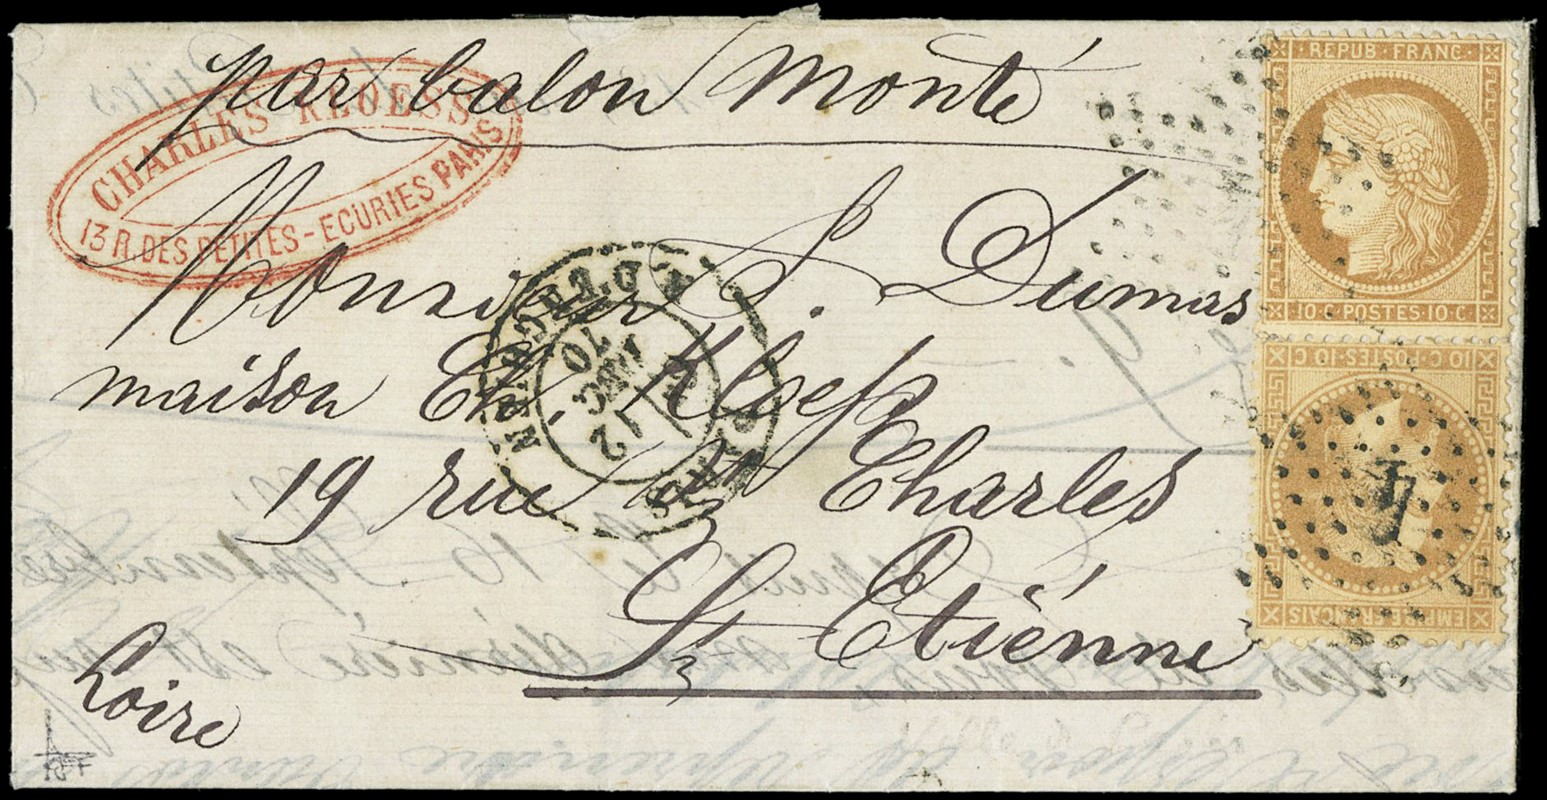 par balon monté
CHARLES KLOESS
13 R. DES PETITES-ECURIES PARIS
Monsieur S. Dumas
maison Ch. Kloess
19 rue St Charles
St Etiénne
Loire
REPUB·FRANC·
10·C·POSTES·10·C·
10·C·POSTES·10·C
EMPIRE FRANÇAIS
4
PARIS
R. D'ENGHIEN
12
DEC
70
16 Septembre